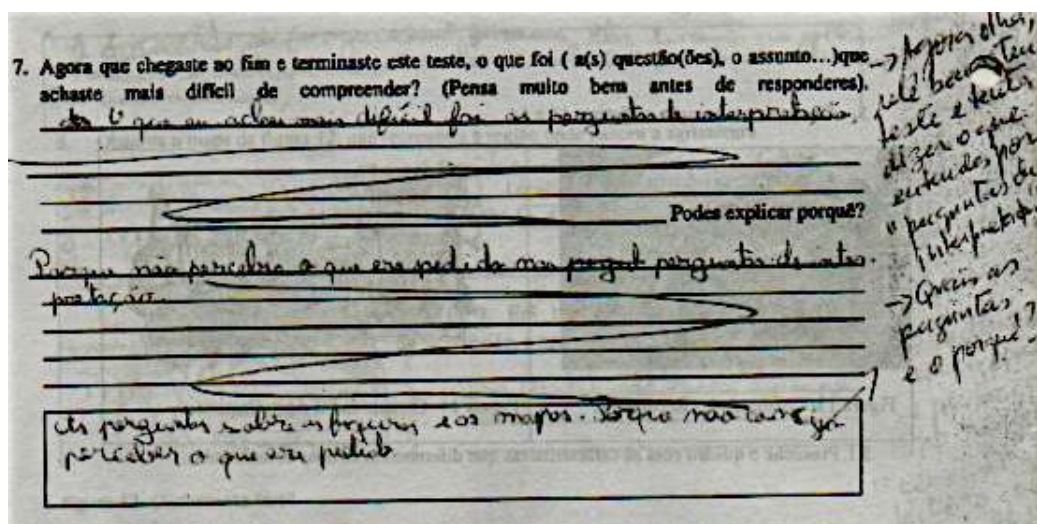 7. Agora que chegaste ao fim e terminaste este teste, o que foi ( a(s) questão(ões), o assunto...)que
achaste mais difícil de compreender? (Pensa muito bem antes de responderes).
que eu achei mais difícil foi as perguntas de interpretação.
Podes explicar porquê?
Porque não percebia o que era pedido nas perguntas de inter-
pretação.
As perguntas sobre as figuras e os mapas. Porque não
perceber o que era pedido
→ Agora olha,
bem teu
teste e tenta
dizer o que
entendes por
"perguntas de
interpretação"
→ Quais as
perguntas
e o porquê?